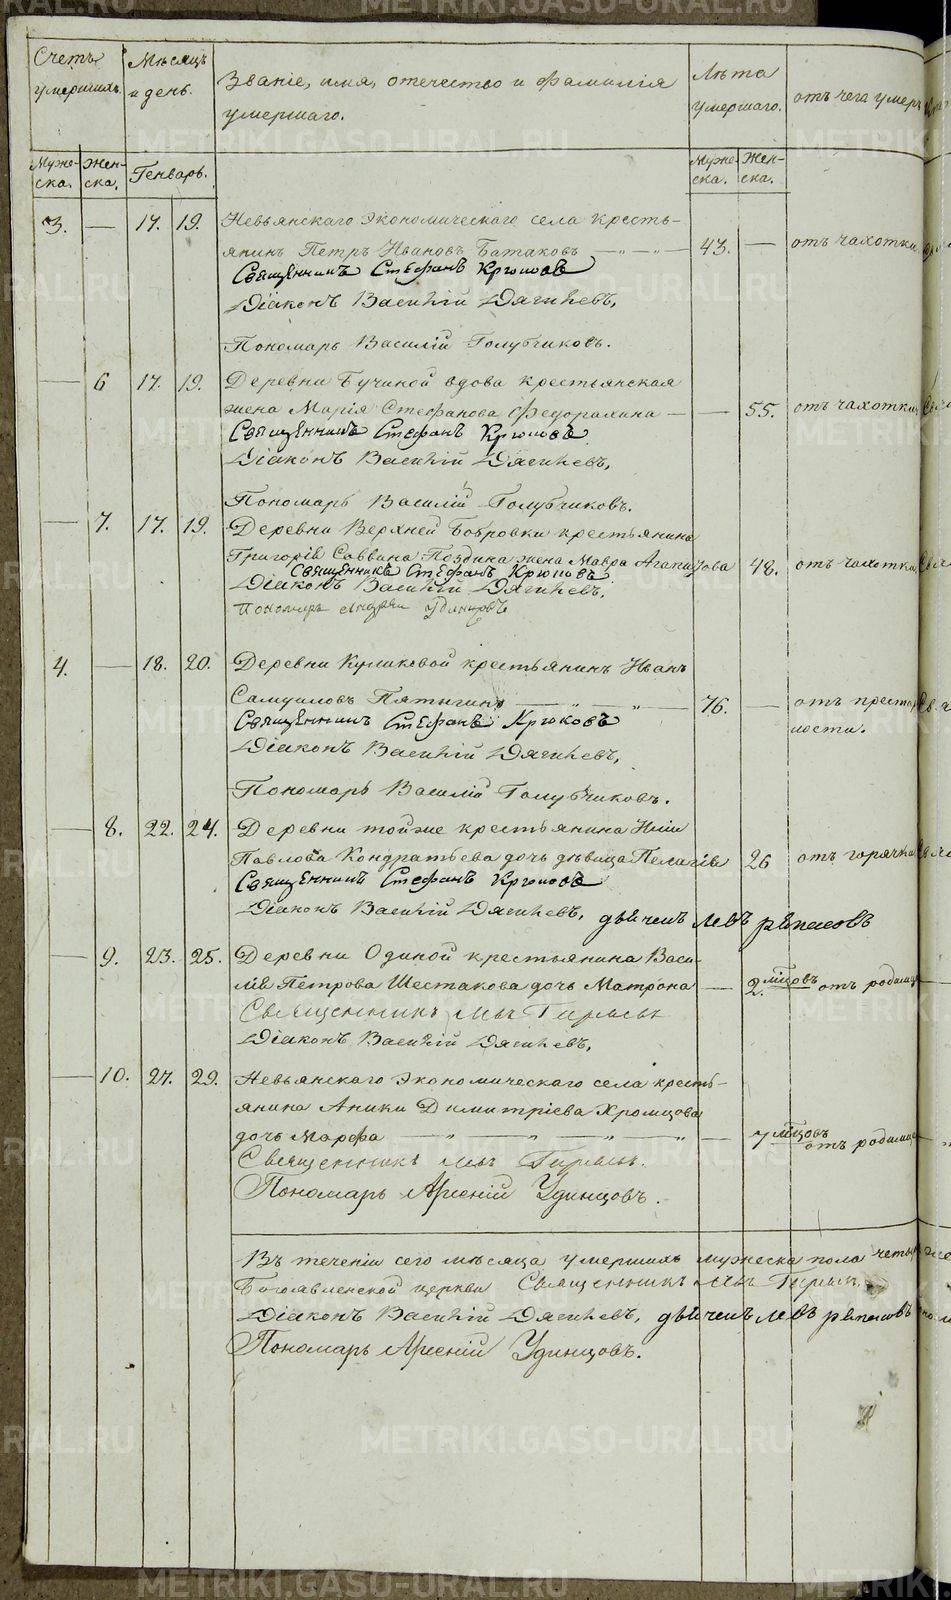 Счетъ умершихъ. Мѣсяцъ и день. Званіе, имя, отечество и фамилія умершаго. Лѣта умершаго. отъ чега умеръ
Муже-ска. Жен-ска. Генварь. Муже-ска. Жен-ска.
3. — 17. 19. Невьянскаго Экономическаго села кресть-
янинъ Петръ Ивановъ Батаковъ — 43. — отъ чахотки
Священникъ Стефанъ Крюковъ
Діаконъ Василій Дягилевъ,
Пономарь Василій Голубчиковъ.
— 6 17. 19. Деревни Бучиной вдова крестьянская
жена Марія Стефанова Федорахина — — 55. отъ чахотки
Священникъ Стефанъ Крюковъ
Діаконъ Василій Дягилевъ,
Пономарь Василій Голубчиковъ.
— 7. 17. 19. Деревни Верхней Бобровки крестьянина
Григорія Саввина Поздина жена Мавра Агапитова 48. отъ чахотки
Священникъ Стефанъ Крюковъ
Діаконъ Василій Дягилевъ,
Пономарь Удинцовъ
4. — 18. 20. Деревни Куликовой крестьянинъ Иванъ
Самуиловъ Пятыгинъ — 76. — отъ престар
лости.
Священникъ Стефанъ Крюковъ
Діаконъ Василій Дягилевъ,
Пономарь Василій Голубчиковъ.
— 8. 22. 24. Деревни тойже крестьянина Иліи
Павлова Кондратьева дочь дѣвица Пелагія 26 отъ горячки
Священникъ Стефанъ Крюковъ
Діаконъ Василій Дягилевъ, дьячекъ левъ
— 9. 23. 25. Деревни Одиной крестьянина Васи-
лія Петрова Шестакова дочь Матрона — 2. мцовъ отъ родимца
Священникъ
Діаконъ Василій Дягилевъ,
— 10. 27. 29. Невьянскаго Экономическаго села кресть-
янина Аники Димитріева Хромцова
дочь Марфа — — 7 мцовъ отъ родимца
Священникъ
Пономарь Арсеній Удинцовъ.
Въ теченіи сего мѣсяца умершихъ мужеска пола четы
Богоявленской церкви Священникъ
Діаконъ Василій Дягилевъ, дьячекъ левъ
Пономарь Арсеній Удинцовъ.